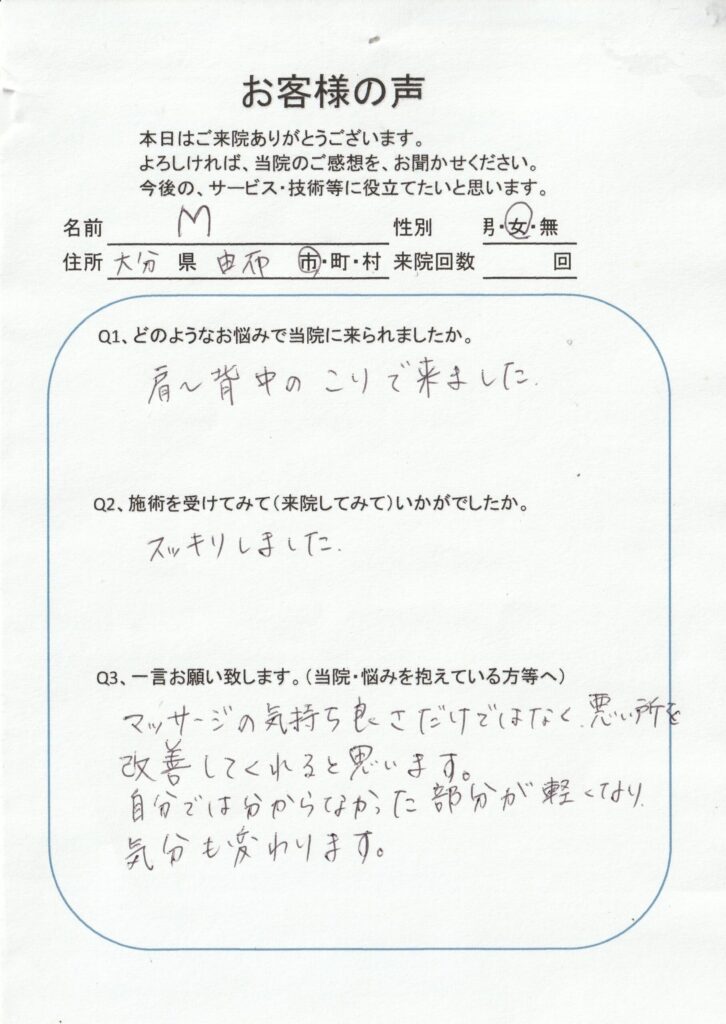 お客様の声
本日はご来院ありがとうございます。
よろしければ、当院のご感想を、お聞かせください。
今後の、サービス・技術等に役立てたいと思います。
名前 M 性別 男・女・無
住所 大分 県 由布 市・町・村 来院回数 回
Q1、どのようなお悩みで当院に来られましたか。
肩〜背中のこりで来ました.
Q2、施術を受けてみて(来院してみて)いかがでしたか。
スッキリしました.
Q3、一言お願い致します。(当院・悩みを抱えている方等へ)
マッサージの気持ち良さだけではなく、悪い所を
改善してくれると思います。
自分では分からなかった部分が軽くなり、
気分も変わります。